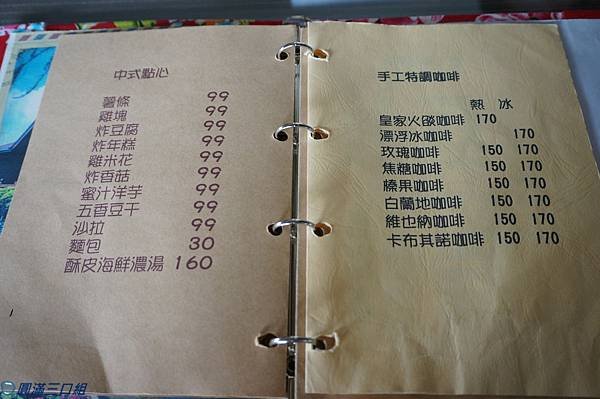 中式點心
薯條 99
雞塊 99
炸豆腐 99
炸年糕 99
雞米花 99
炸香菇 99
蜜汁洋芋 99
五香豆干 99
沙拉 99
麵包 30
酥皮海鮮濃湯 160
手工特調咖啡
熱 冰
皇家火燄咖啡 170
漂浮冰咖啡 170
玫瑰咖啡 150 170
焦糖咖啡 150 170
榛果咖啡 150 170
白蘭地咖啡 150 170
維也納咖啡 150 170
卡布其諾咖啡 150 170
圓滿三口組